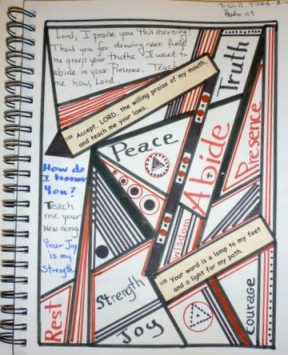 Lord, I praise you this morning!
Thank you for drawing near. Help
me grasp your truths. I want to
abide in your Presence. Teach
me how, Lord.
Psalm 119
108 Accept, LORD, the willing praise of my mouth,
and teach me your laws.
Truth
Peace
Abide
Presence
How do
I honor
You?
Teach
me your
New song.
Your Joy
is my
Strength.
Wisdom
105 Your word is a lamp to my feet
and a light for my path.
Rest
Strength
Joy
Courage